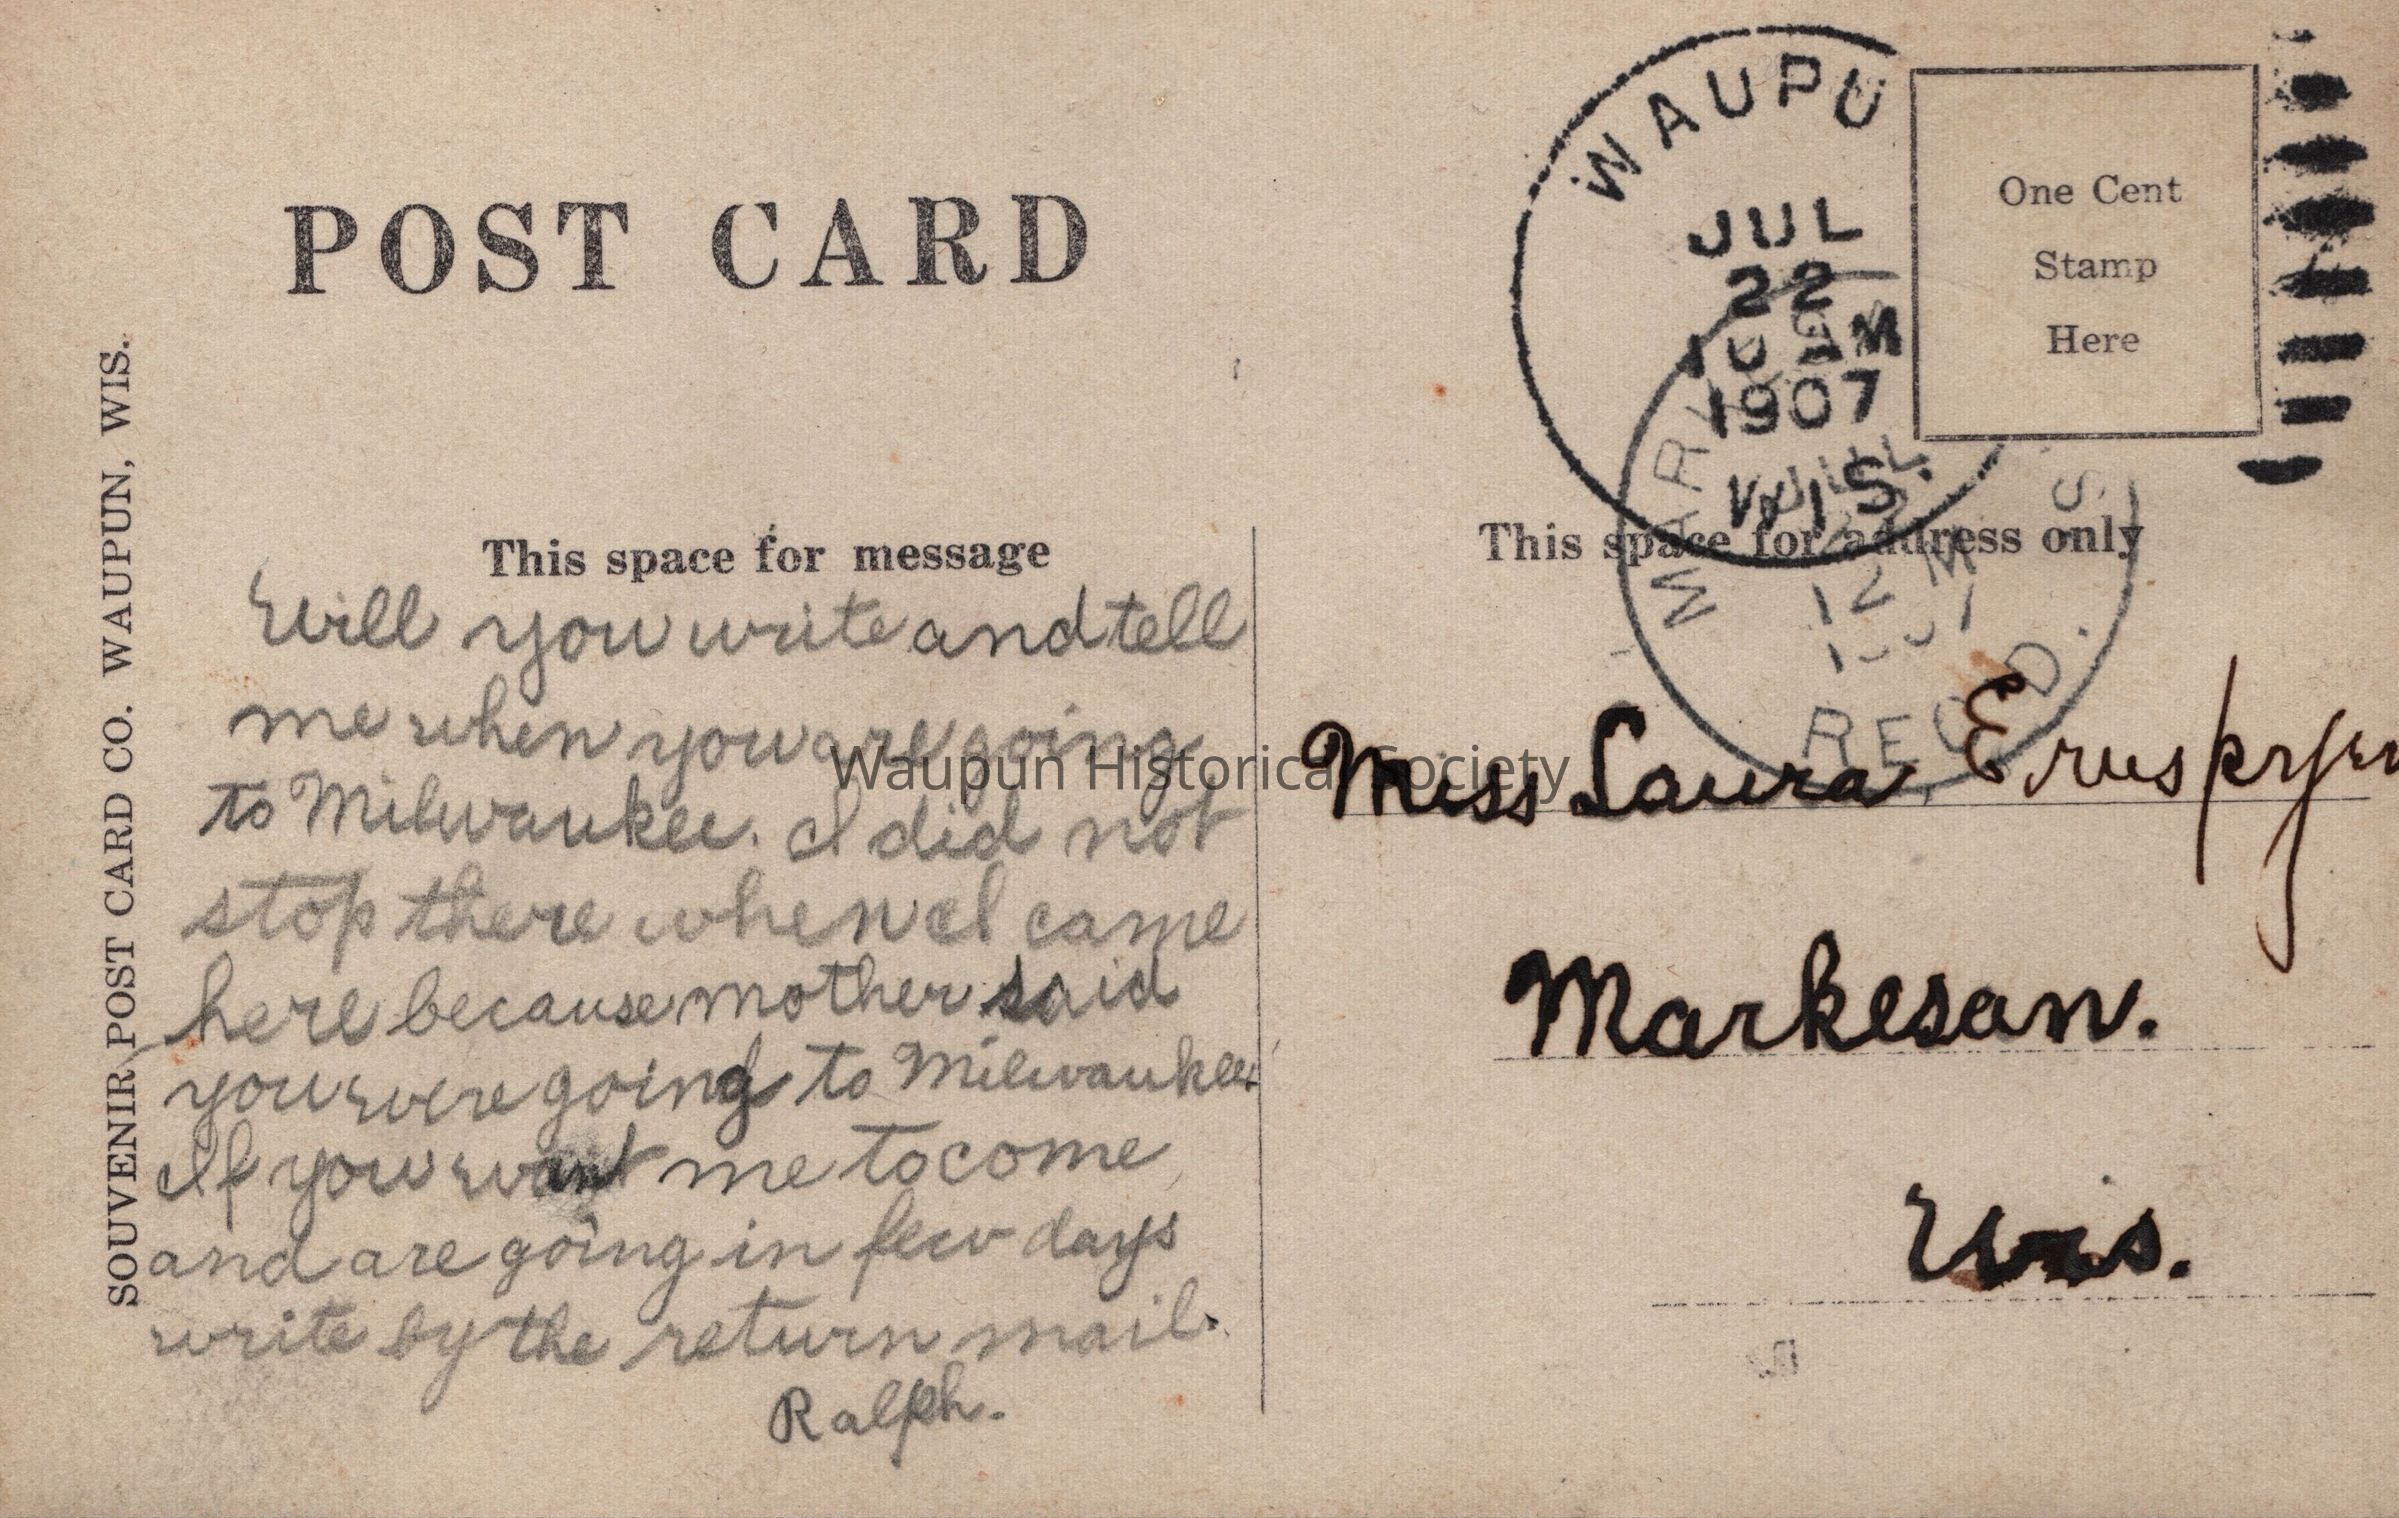 POST CARD
SOUVENIR POST CARD CO. WAUPUN, WIS.
This space for message
Will you write and tell
me when you are going
to Milwaukee. I did not
stop there when I came
here because mother said
you were going to Milwaukee
If you want me to come
and are going in few days
write by the return mail.
Ralph.
WAUPU
JUL
22
1907
WIS.
One Cent
Stamp
Here
This space for address only
MAR
12 M
REC'D.
Miss Laura
Markesan.
Wis.
Waupun Historical Society